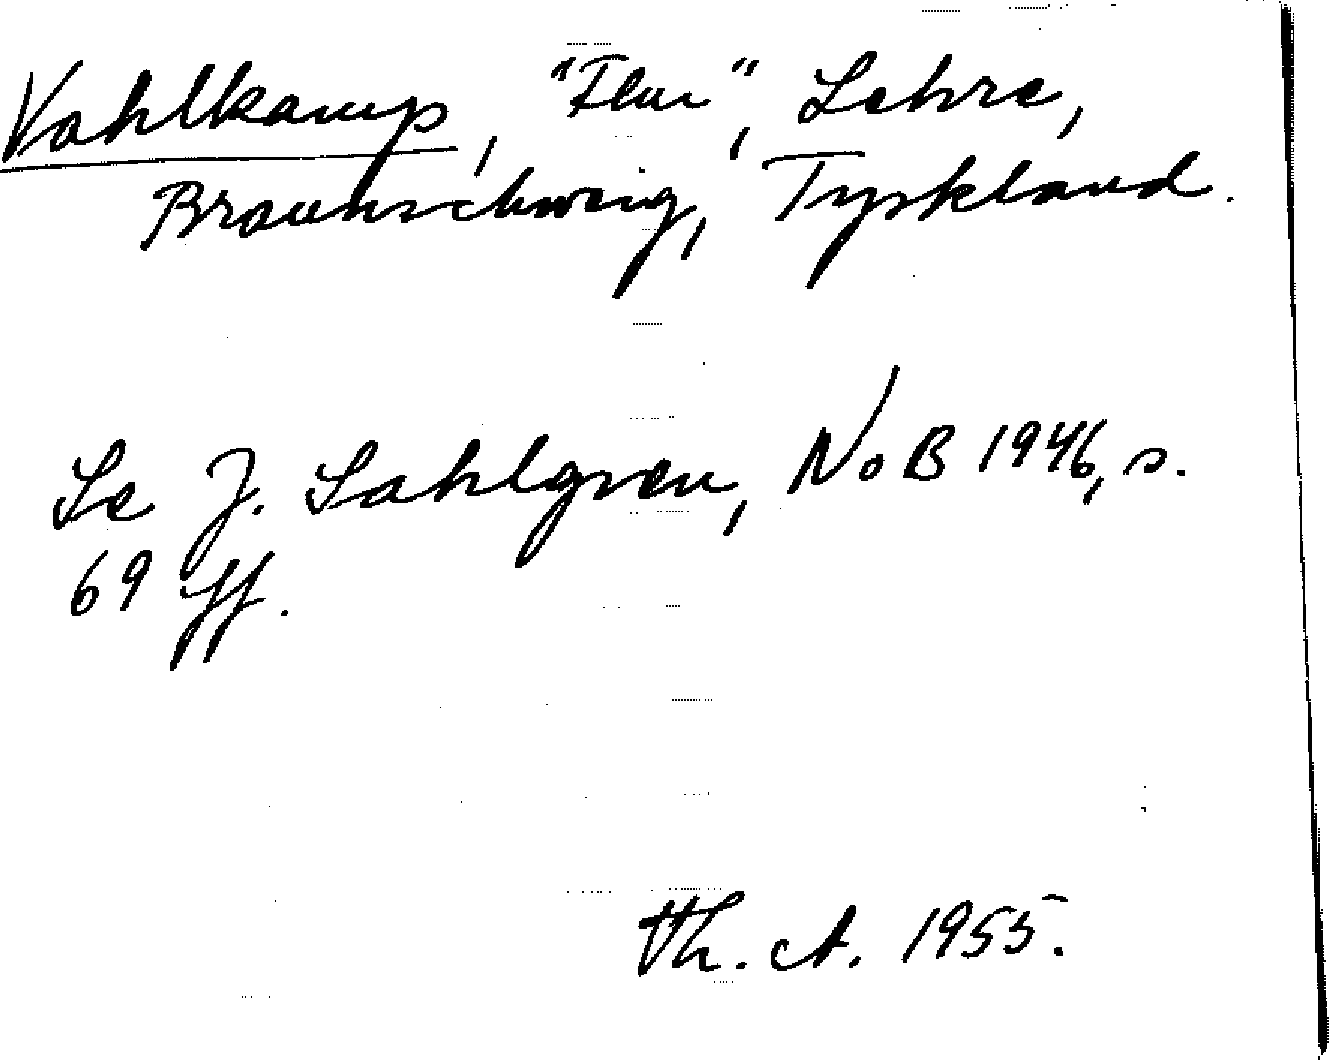 Vahlkamp, "Flur", Lehre,
Braunschweig, Tyskland.
Se J. Sahlgren, NoB 1946, s.
69 ff.
Th. A. 1955.